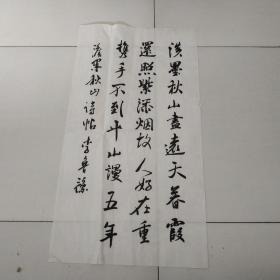 淡墨秋山畫遠天暮霞
還照紫添烟故人好在重
攜手不到平山謾五年
淡墨秋山诗帖 李